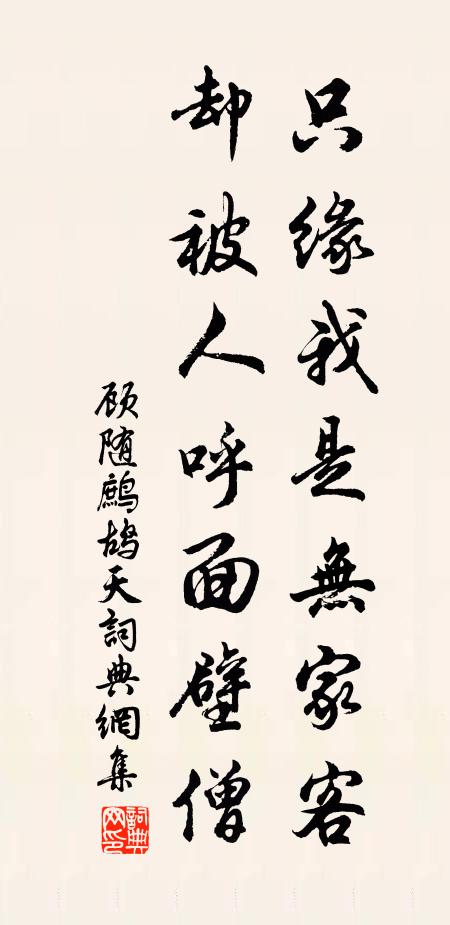 只缘我是無家客
却被人呼面壁僧
顾随鹧鸪天詞典網集
詞典網印